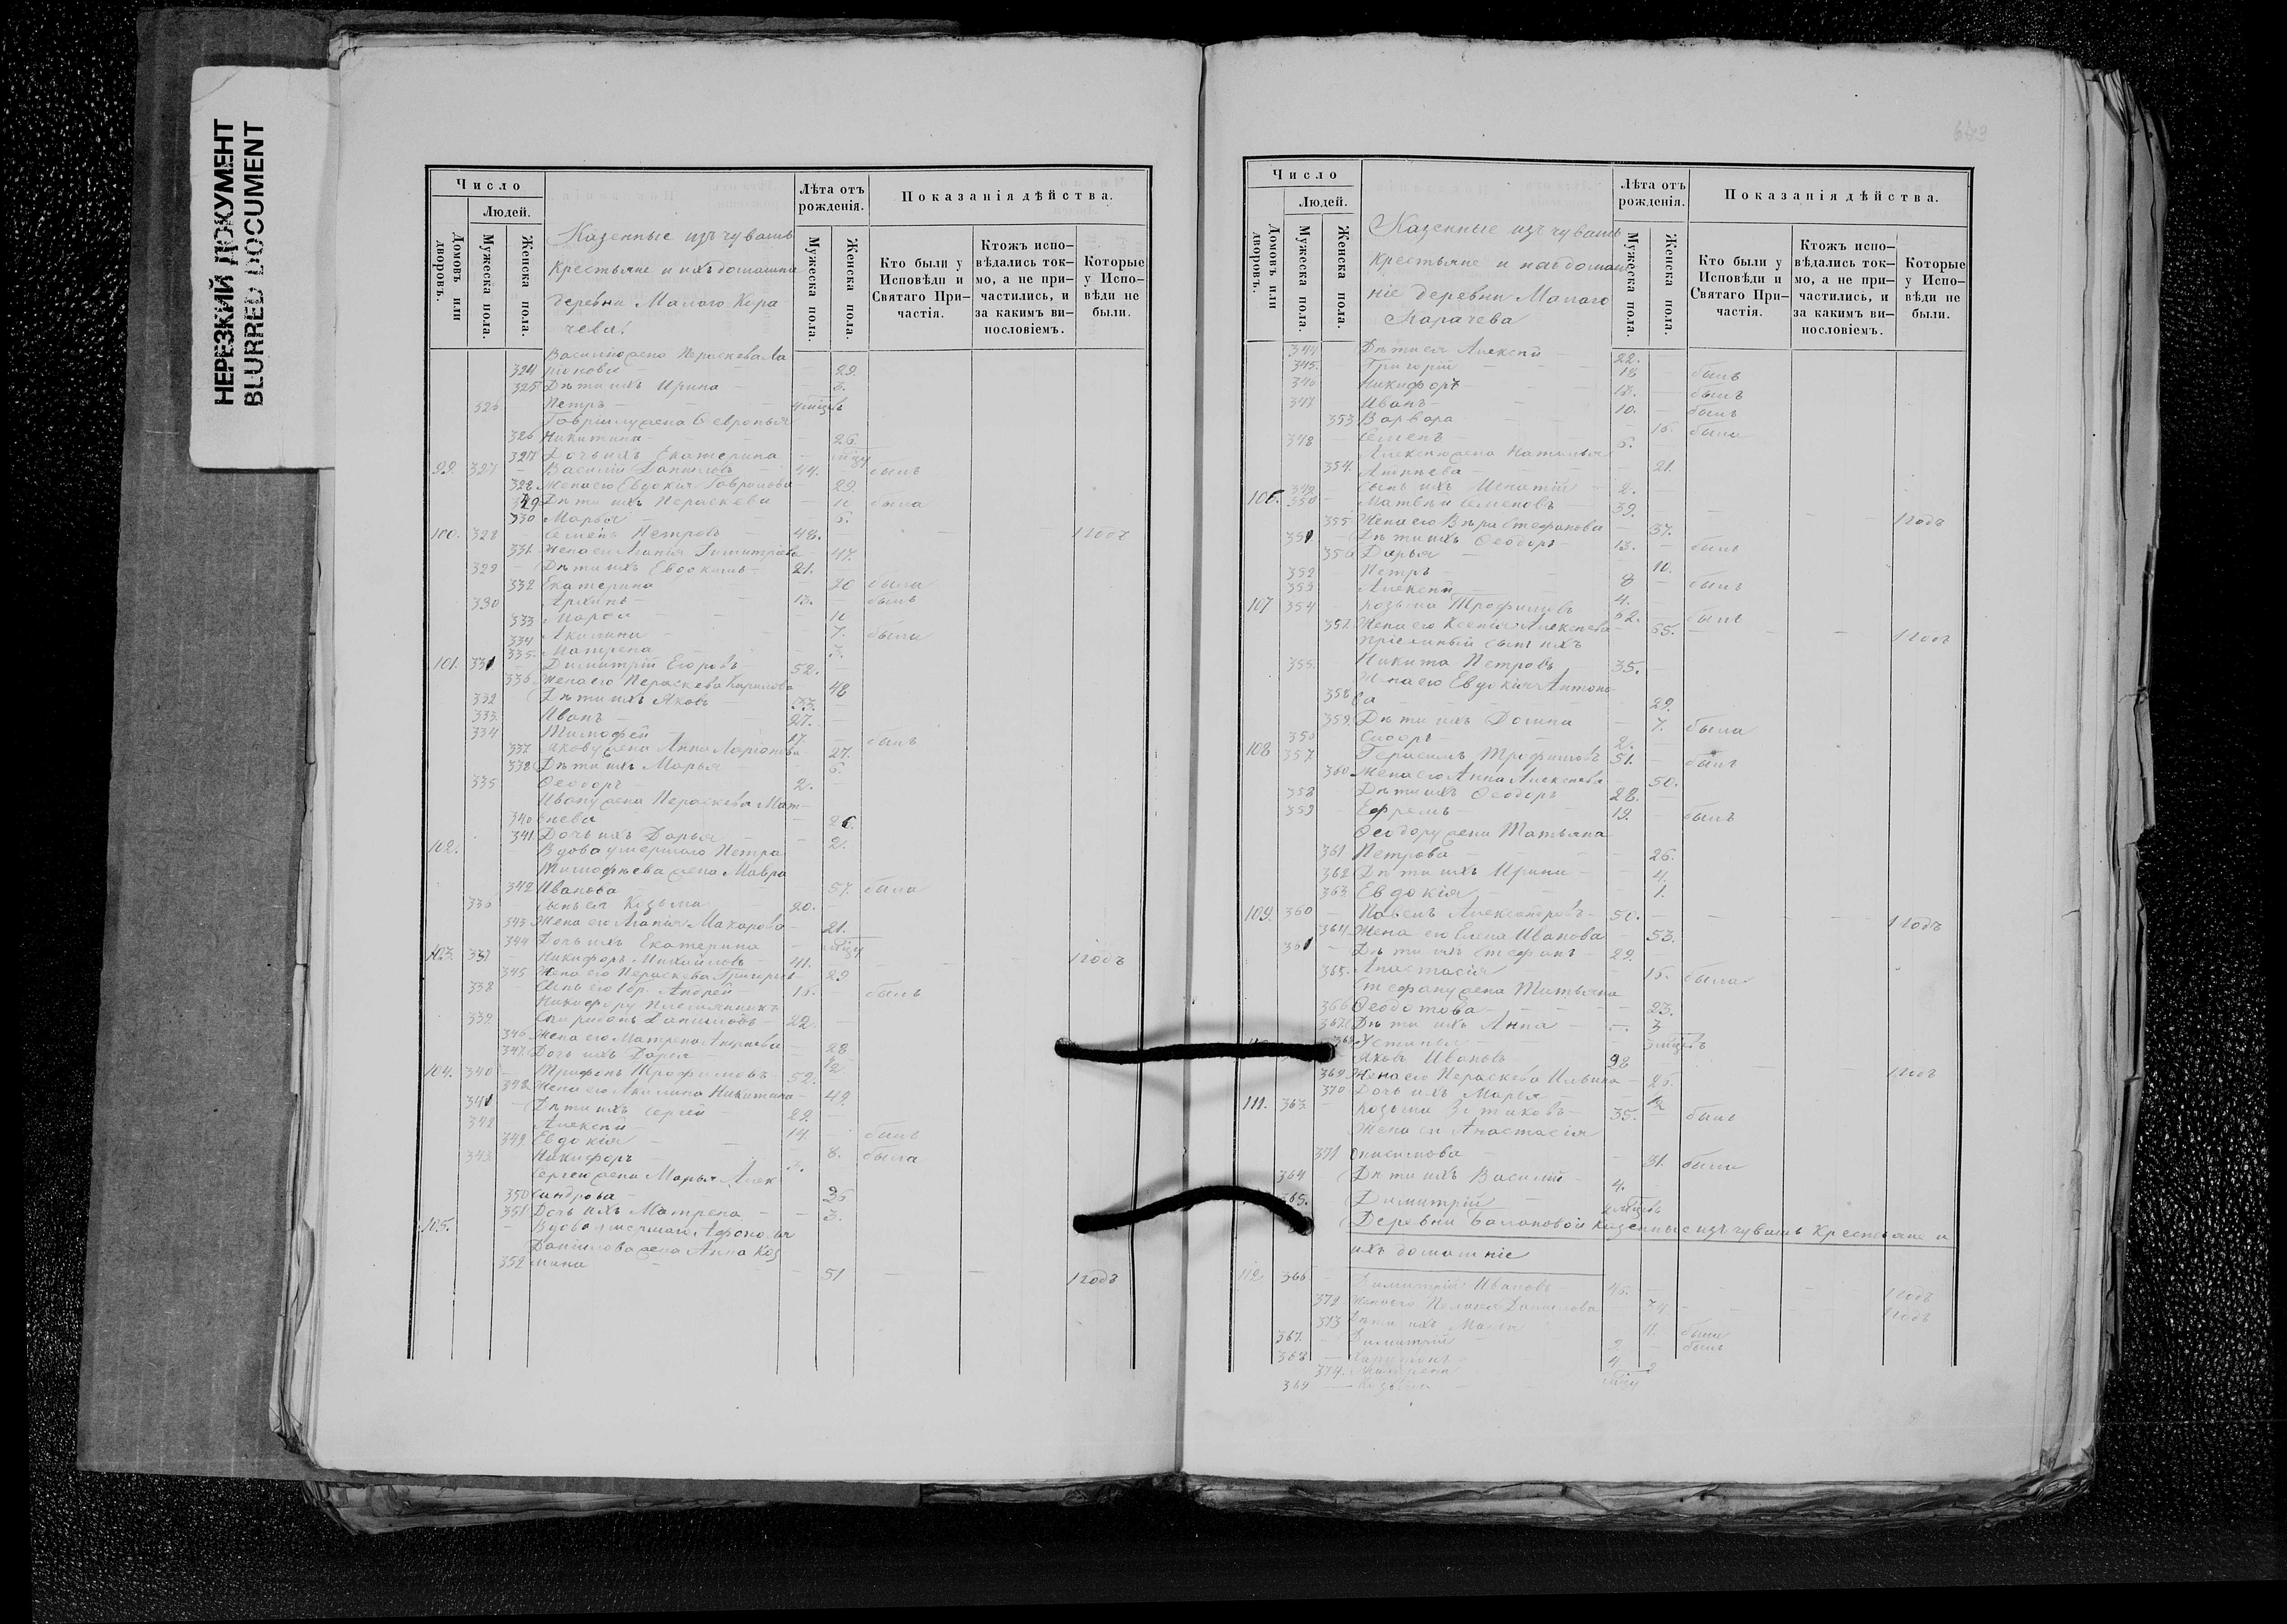 НЕРЕЗКИЙ ДОКУМЕНТ
BLURRED DOCUMENT
Число
Людей.
Домовъ или дворовъ.
Мужеска пола.
Женска пола.
Казенные изъ чувашъ
крестьяне и ихъ домашніе
деревни Малаго Кара
чева.
Лѣта отъ рожденія.
Мужеска пола.
Женска пола.
Показанія дѣйства.
Кто были у Исповѣди и Святаго При-частія.
Ктожъ испо-вѣдались ток-мо, а не при-частились, и за какимъ ви-нословіемъ.
Которые у Испо-вѣди не были.
Василію жена Пераскева Ла
324 ріонова 29.
325 Дѣти ихъ Ирина 3.
326 Петръ
Гаврилу жена Февронья
326 Никитина 26.
327 Дочь ихъ Екатерина
99. 327 Василій Даниловъ 44. былъ
328 Жена его Евдокія Гаврилова 29.
329 Дѣти ихъ Пераскева 11 была
330 Марья 6.
100. 328 Семенъ Петровъ 48. 1 годъ
331. Жена его Агапія Димитріева 47.
329 Дѣти ихъ Евдокимъ 21.
332 Екатерина 20 была
330 Архипъ 13. былъ
333 11
334 Акилина 7. была
335. Матрена 3.
101. 331 Димитрій Егоровъ 52.
336 Жена его Пераскева Кирилова 48
332 Дѣти ихъ Яковъ 33.
333. Иванъ 27.
334 Тимофей 17. былъ
337 Якову жена Анна Ларіонова 27.
338 Дѣти ихъ Марья 6.
335 Феодоръ 2.
Ивану жена Пераскева Мат-
340 вѣева 26
341. Дочь ихъ Дарья 2.
102. Вдова умершаго Петра
Тимофѣева жена Мавра
342 Иванова 57. была
336 Сынъ ея Козьма 20.
343 Жена его Агапія Макарова 21.
344 Дочь ихъ Екатерина
103. 337 Никифоръ Михайловъ 41. 1 годъ
345 Жена его Пераскева Григорьева 29
338 Сынъ его Андрей 16. былъ
Никифору племянникъ
339. Спиридонъ Даниловъ 22.
346 Жена его Матрена Андреева 28
347. Дочь ихъ Дарья
104. 340 Трифонъ Трофимовъ 52.
348 Жена его Акилина Никитина 49.
341 Дѣти ихъ Сергей 29.
342 Алексѣй 14. былъ
349 Евдокія 8. была
343 Никифоръ 3.
Сергею жена Марья Алек
350 сандрова 26
351 Дочь ихъ Матрена 3.
105. Вдова умершаго Афонасья
Данилова жена Анна Коз
352 мина 51 1 годъ
Число
Людей.
Домовъ или дворовъ.
Мужеска пола.
Женска пола.
Казенные изъ чувашъ
крестьяне и ихъ домаш
ніе деревни Малаго
Карачева
Лѣта отъ рожденія.
Мужеска пола.
Женска пола.
Показанія дѣйства.
Кто были у Исповѣди и Святаго При-частія.
Ктожъ испо-вѣдались ток-мо, а не при-частились, и за какимъ ви-нословіемъ.
Которые у Испо-вѣди не были.
344 Дѣти ея Алексѣй 22.
345. Григорій 18 былъ
346 Никифоръ 13. былъ
347 Иванъ 10. былъ
353 Варвара 16. была
348 Семенъ 6.
Алексѣю жена Наталья
354. 21.
349 Сынъ ихъ Игнатій 2.
106. 350 Матвѣй Семеновъ 39. 1 годъ
355 Жена его Вѣра Стефанова 37.
351 Дѣти ихъ Феодоръ 13. былъ
356 Дарья 10.
352 Петръ 8 былъ
353 Алексѣй 4.
107 354 Козьма Трофимовъ 62. былъ
357 Жена его Ксенія Алексѣева 65. 1 годъ
Пріемный сынъ ихъ
355. Никита Петровъ 35.
Жена его Евдокія Антоно
358 ва 29.
359. Дѣти ихъ Домна 7. была
356 Сидоръ 2.
108 357 Герасимъ Трофимовъ 51. былъ
360 Жена его Анна Алексѣева 50.
358 Дѣти ихъ Феодоръ 28.
359 Ефремъ 19. былъ
Феодору жена Татьяна
361 Петрова 26.
362 Дѣти ихъ Ирина 4.
363 Евдокія 1.
109. 360 Павелъ Александровъ 50. 1 годъ
364 Жена его Елена Иванова 53.
361 Дѣти ихъ Стефанъ 29.
365. Анастасія 16. была
Стефану жена Татьяна
366 Феодотова 23.
367. Дѣти ихъ Анна 3
368 Устинья
Яковъ Ивановъ 28 1 годъ
369 Жена его Пераскева Ильина 26.
370 Дочь ихъ Марья
111. 363. Козьма 35. былъ
Жена его Анастасія
371 Онисимова 31. была
364 Дѣти ихъ Василій 4.
365. Димитрій
Деревни Балановой казенные изъ чувашъ крестьяне и
ихъ домашніе
112 366 Димитрій Ивановъ 46. 1 годъ
372 Жена его Данилова 1 годъ
373 Дѣти ихъ 11. была
367. Димитрій былъ
368 4
374. Матрена 2
369 Козьма